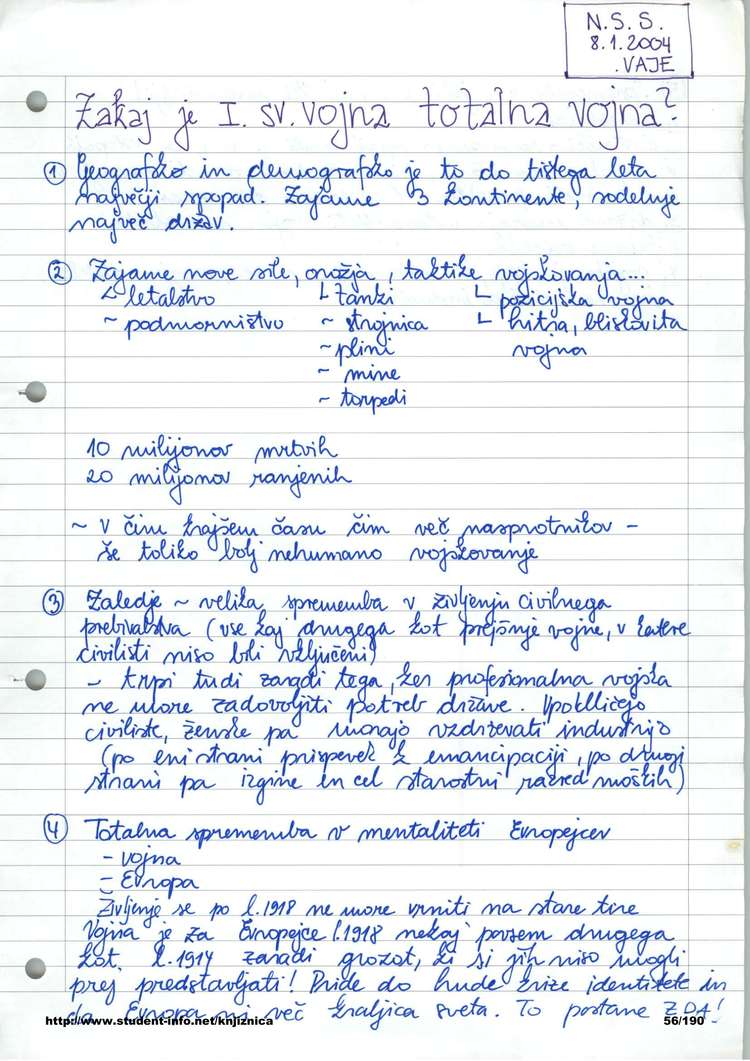 N.S.S.
8.1.2004
.VAJE
Zakaj je I. sv. vojna totalna vojna?
① Geografsko in demografsko je to do tistega leta
največji spopad. Zajame 3 kontinente, sodeluje
največ držav.
② Zajame nove sile, orožja, taktike vojskovanja...
↳ letalstvo ↳ tanki ↳ pozicijska vojna
~ podmorništvo ~ strojnica ↳ hitra, bliskovita
~ plini vojna
~ mine
~ torpedi
10 milijonov mrtvih
20 milijonov ranjenih
~ V čim krajšem času čim več nasprotnikov -
še toliko bolj nehumano vojskovanje
③ Zaledje ~ velika sprememba v življenju civilnega
prebivalstva (vse kaj drugega kot prejšnje vojne, v katere
civilisti niso bili vključeni)
- trpi tudi zaradi tega, ker profesionalna vojska
ne more zadovoljiti potreb države. Vpokličejo
civiliste, ženske pa morajo vzdrževati industrijo
(po eni strani prispevek k emancipaciji, po drugi
strani pa izgine en cel starostni razred moških)
④ Totalna sprememba v mentaliteti Evropejcev
- vojna
- Evropa
Življenje se po l. 1918 ne more vrniti na stare tire
Vojna je za Evropejce l. 1918 nekaj povsem drugega
kot l. 1914 zaradi grozot, ki si jih niso mogli
prej predstavljati! Pride do hude krize identitete in
da Evropa ni več kraljica sveta. To postane ZDA!
http://www.student-info.net/knjiznica 56/190